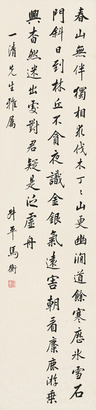 春山無伴獨相求伐木丁〻山更幽澗道餘寒歷冰雪石
門斜日到林丘不貪夜識金銀氣遠害朝看麋鹿游乘
興杳然迷出處對君疑是泛虛舟
一清先生雅屬
叔平馬衡